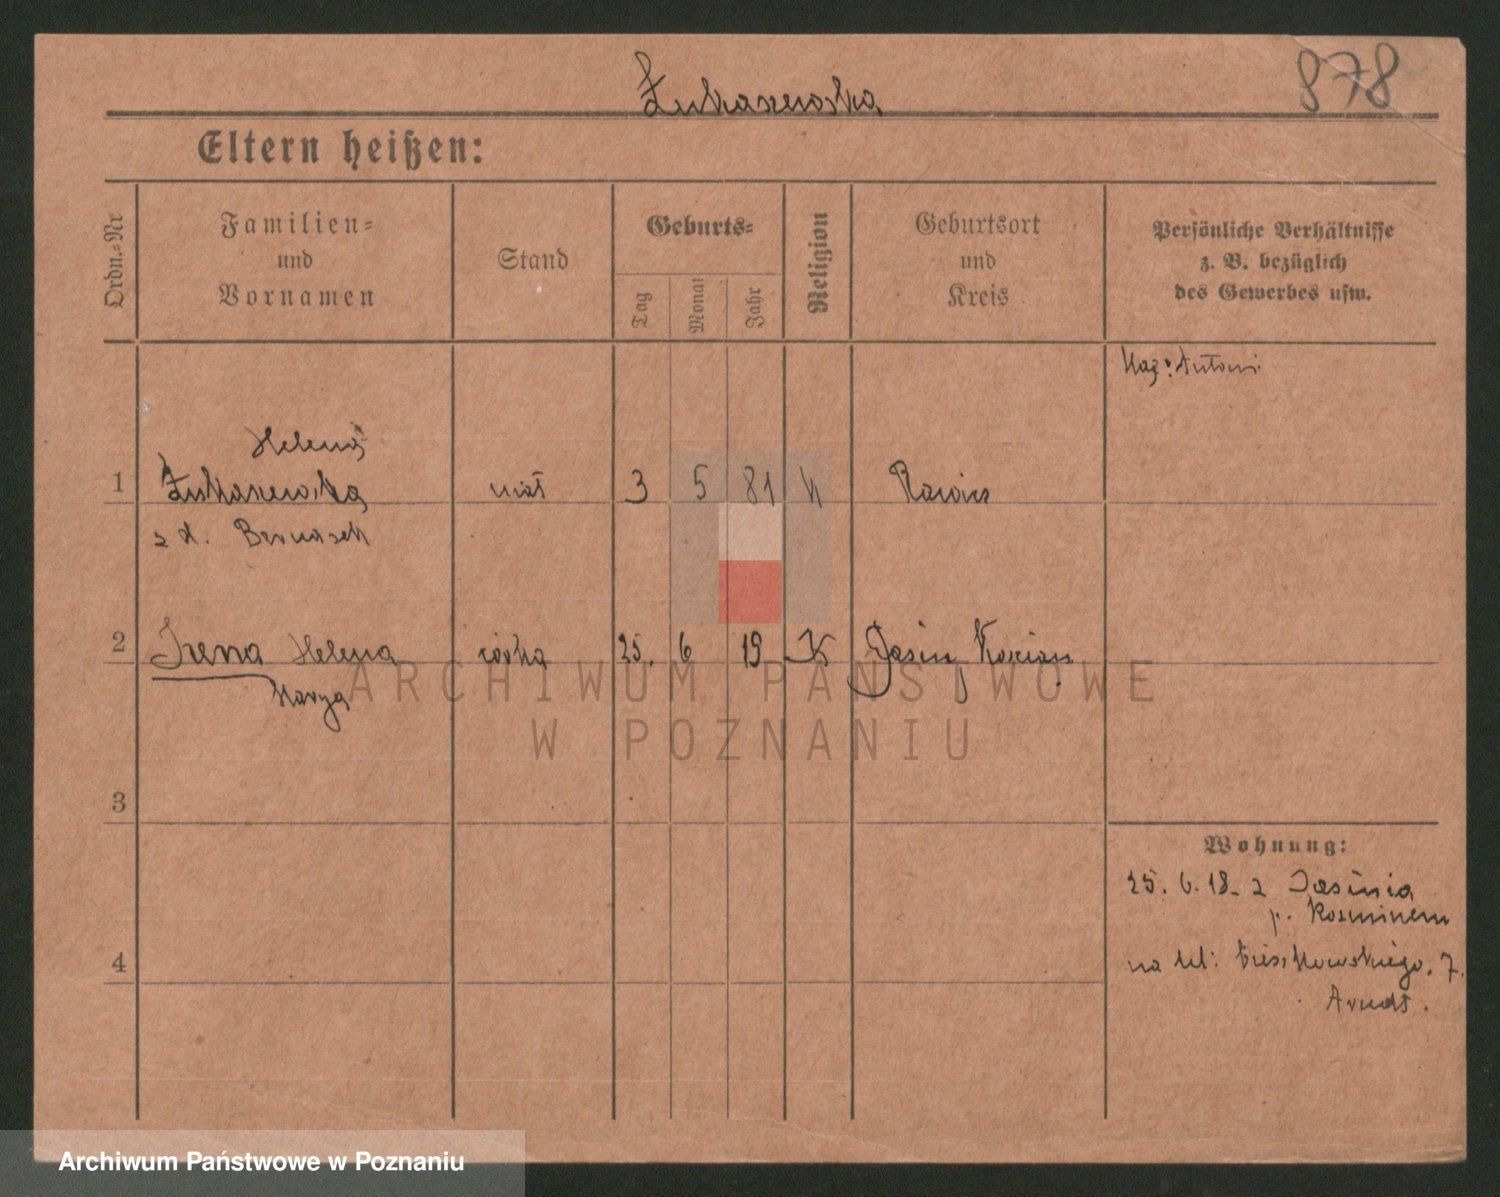 Łukaszewska
878
Eltern heißen:
Ordn.-Nr
Familien-
und
Vornamen
Stand
Geburts-
Tag
Monat
Jahr
Religion
Geburtsort
und
Kreis
Persönliche Verhältnisse
z. B. bezüglich
des Gewerbes usw.
Antoni
Helena
1 Łukaszewska 3 5 81 K
z d. Bernasek
2 Irena Helena córka 25. 6 19 K
Marya
3
Wohnung:
25. 6. 18. z Jasinia
p. Kosminem
4
na ul: Cieszkowskiego. 7.
Arndt.
ARCHIWUM PAŃSTWOWE
W POZNANIU
Archiwum Państwowe w Poznaniu